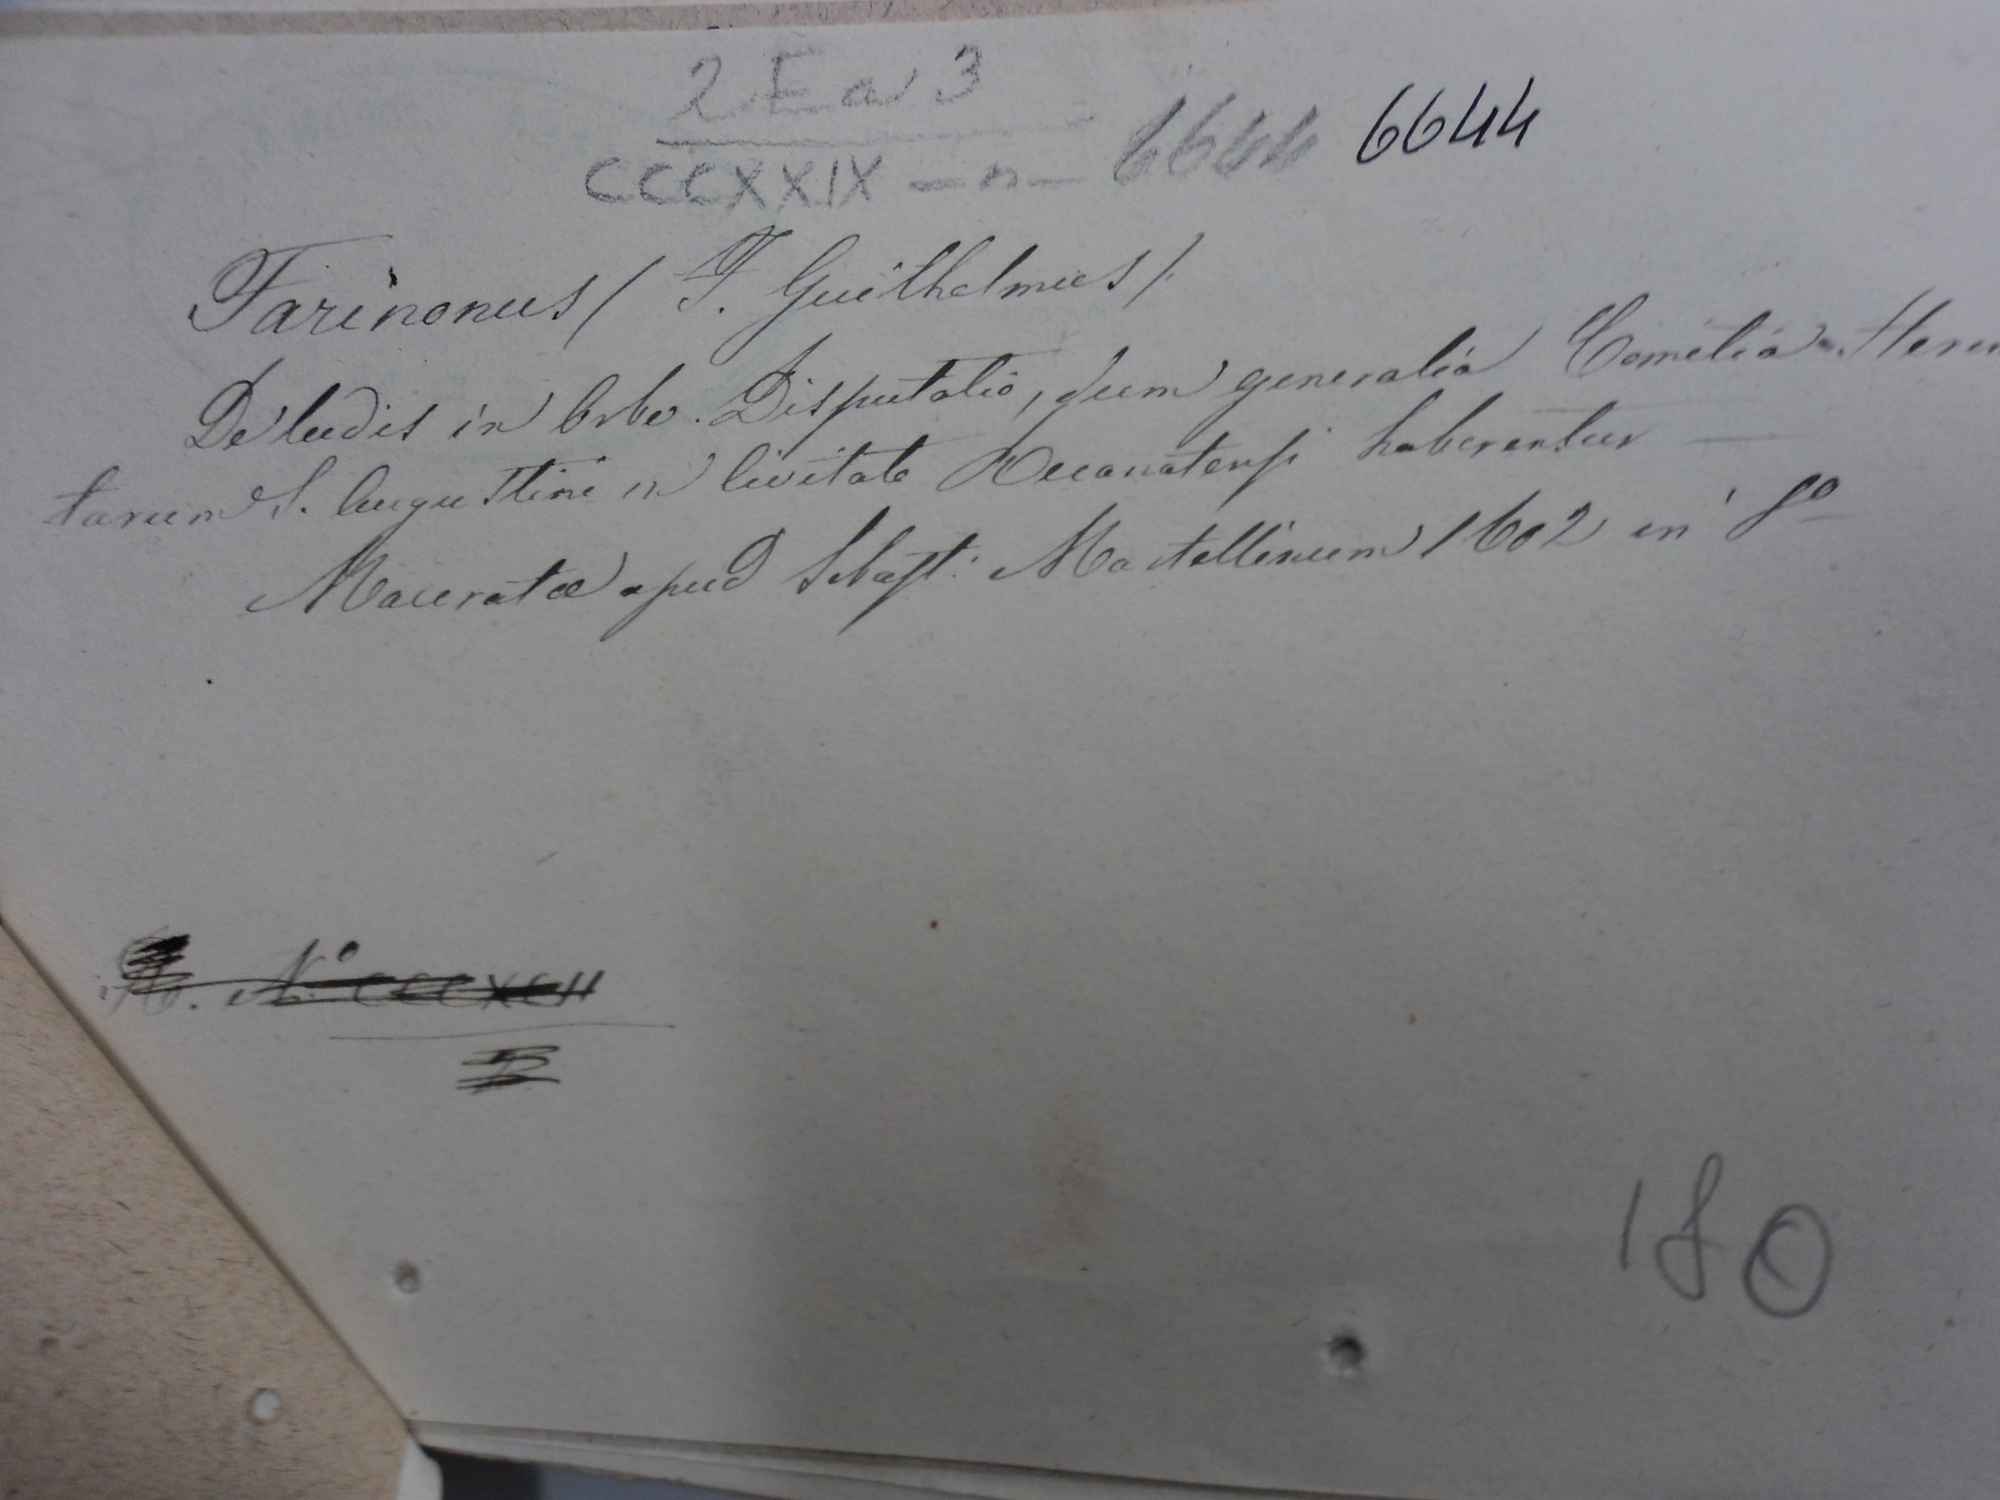 2 E a 3
CCCXXIX - n - 6644 6644
Farinonus (F. Guilhelmus).
De ludis in Orbe. Disputatio, dum generalia Comitia Herem
tarum S. Augustini in Civitate Recanatensi haberentur
Maceratæ apud Sebast: Martellinum 1602 in 8º
Nº CCCXCII
180